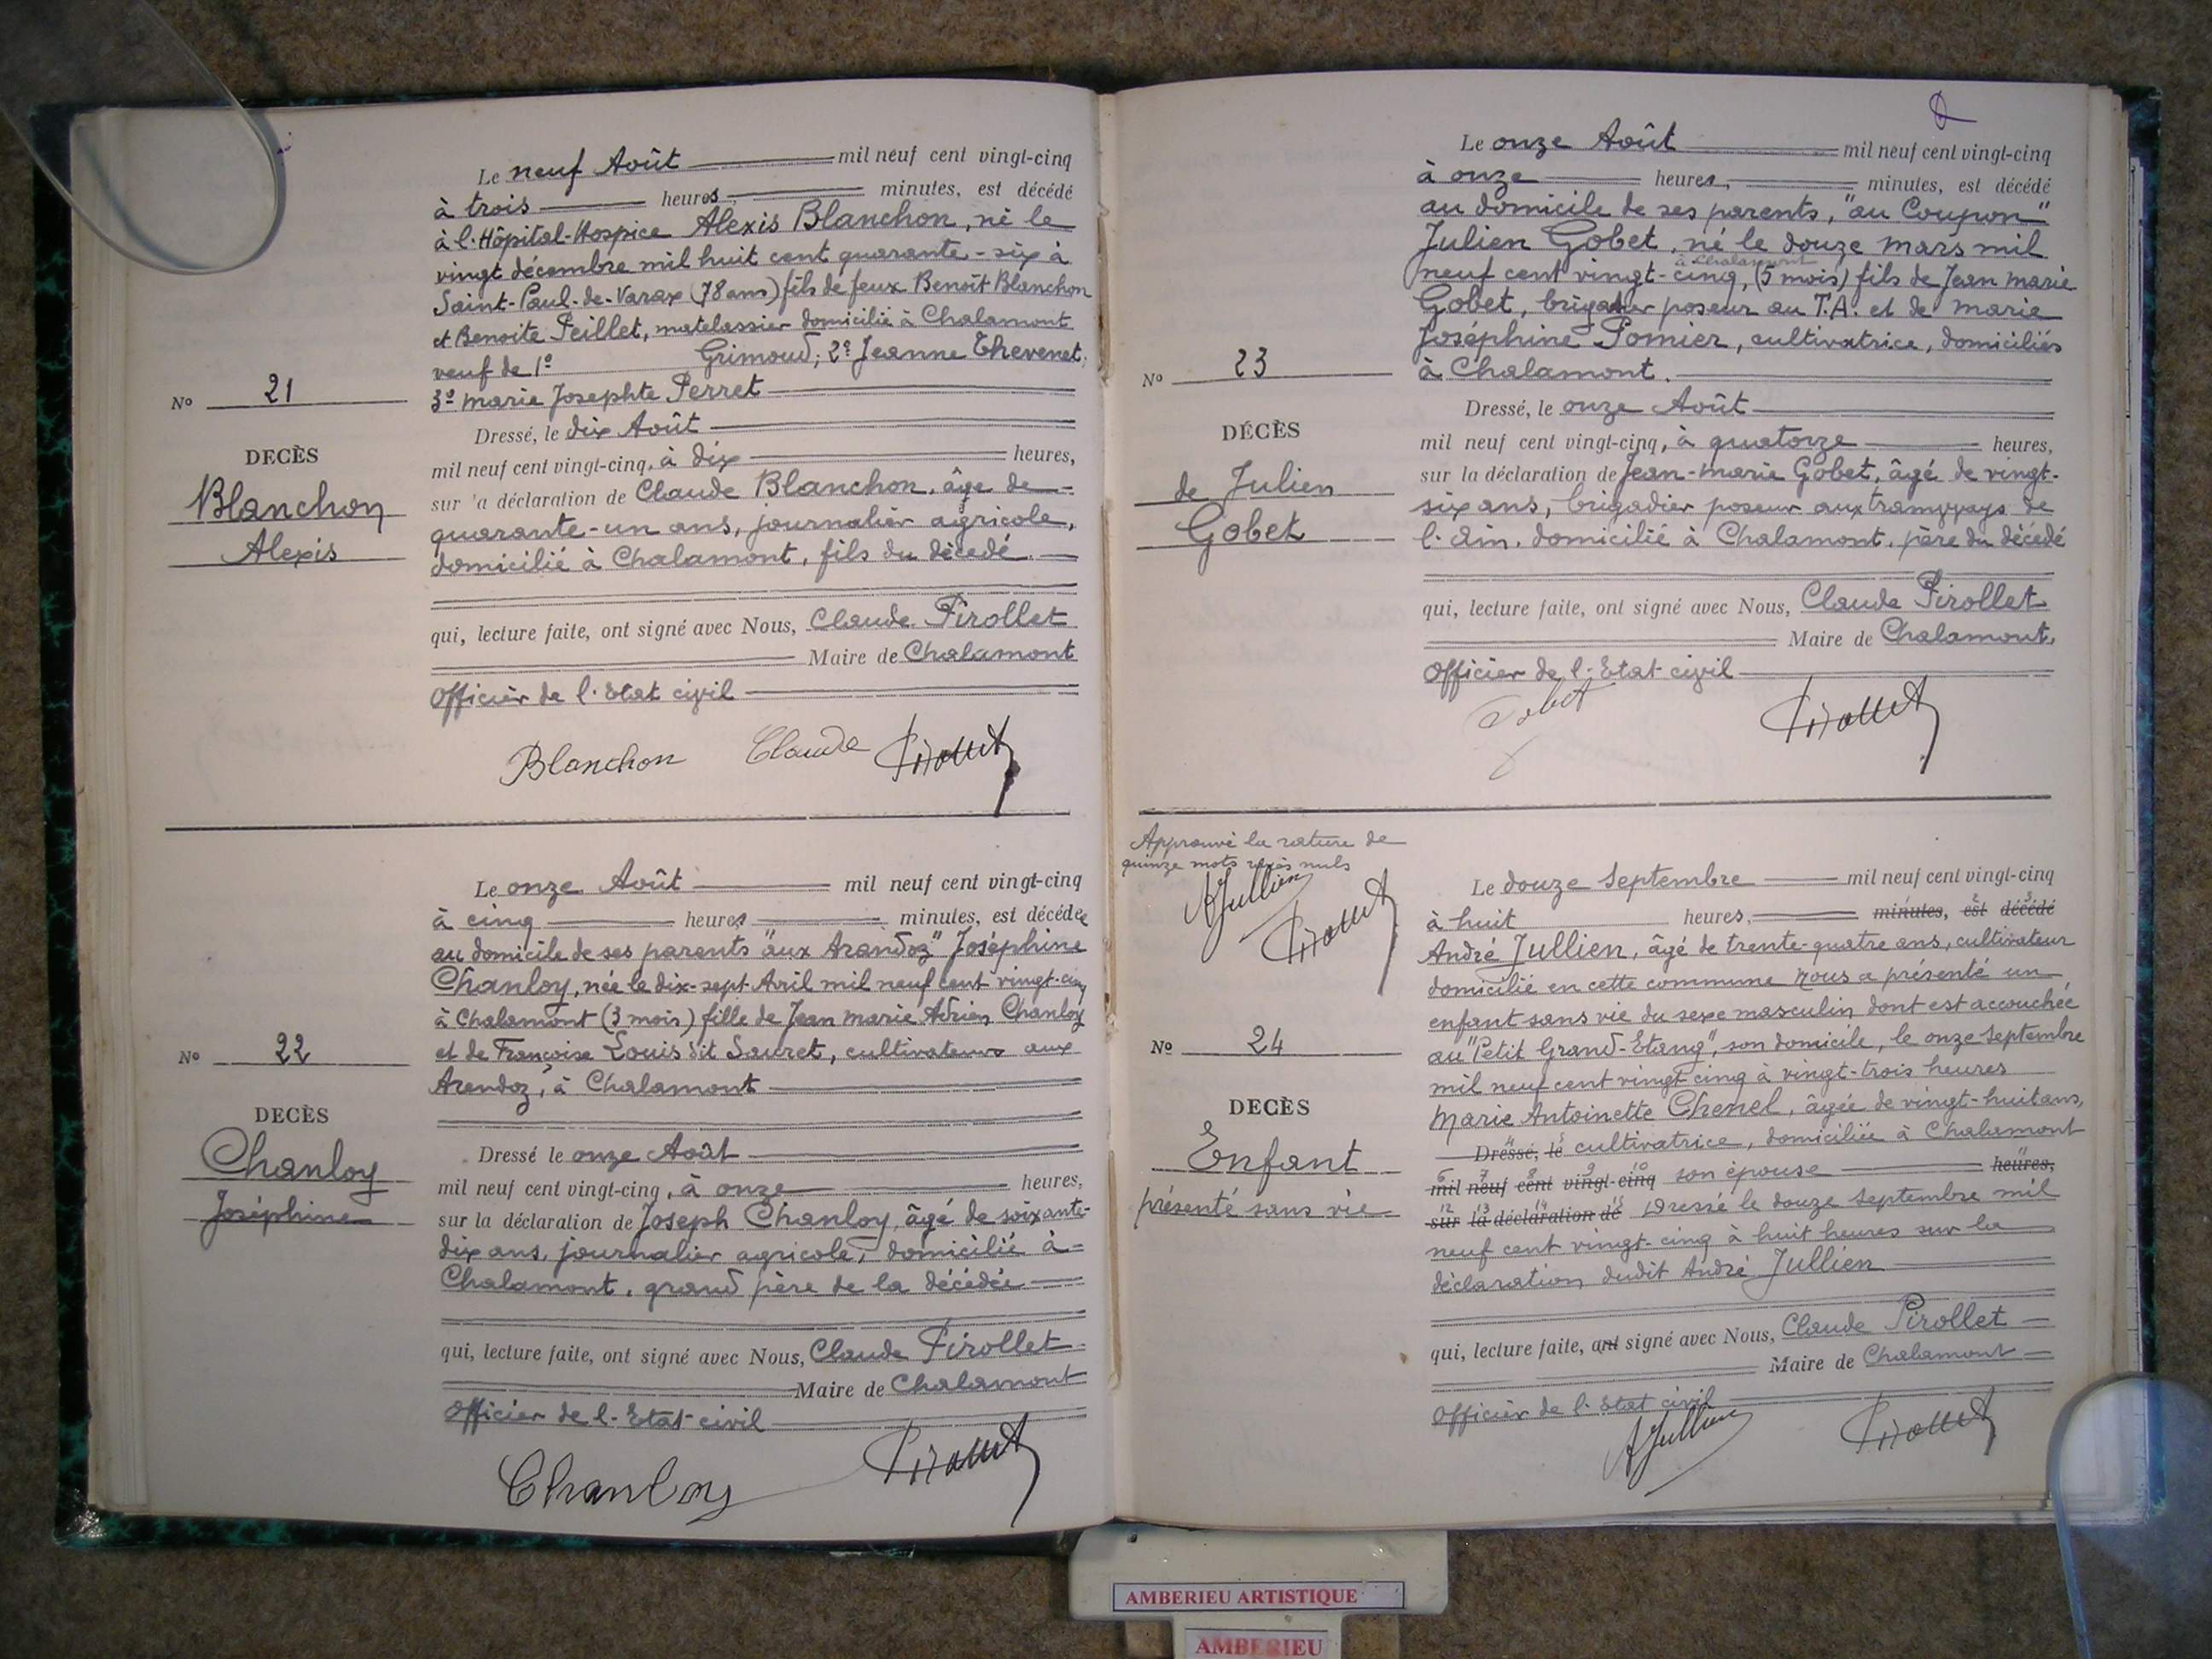 N° 21
DECÈS
Blanchon
Alexis
Le neuf Août mil neuf cent vingt-cinq
à trois heures, minutes, est décédé
à l'Hôpital-Hospice Alexis Blanchon, né le
vingt décembre mil huit cent quarante-six à
Saint-Paul-de-Varax (78 ans) fils de feux Benoît Blanchon
et Benoite Peillet, matelassier domicilié à Chalamont
veuf de 1° Grimoud; 2° Jeanne Thevenet;
3° marie Josephte Perret
Dressé, le dix Août
mil neuf cent vingt-cinq, à dix heures,
sur la déclaration de Claude Blanchon, âgé de
quarante-un ans, journalier agricole,
domicilié à Chalamont, fils du décedé.
qui, lecture faite, ont signé avec Nous, Claude Pirollet
Maire de Chalamont
Officier de l'Etat civil
Blanchon Claude Pirollet
N° 22
DECÈS
Chanloy
Joséphine
Le onze Août mil neuf cent vingt-cinq
à cinq heures minutes, est décédée
au domicile de ses parents "aux Arandoz" Joséphine
Chanloy, née le dix-sept Avril mil neuf cent vingt-cinq
à Chalamont (3 mois) fille de Jean marie Adrien Chanloy
et de Françoise Louis dit Sauret, cultivateurs aux
Arendoz, à Chalamont
Dressé le onze Août
mil neuf cent vingt-cinq, à onze heures,
sur la déclaration de Joseph Chanloy, âgé de soixante-
dix ans, journalier agricole, domicilié à
Chalamont, grand père de la décédée
qui, lecture faite, ont signé avec Nous, Claude Pirollet
Maire de Chalamont
Officier de l'Etat-civil
Chanloy Pirollet
N° 23
DÉCÈS
de Julien
Gobet
Le onze Août mil neuf cent vingt-cinq
à onze heures, minutes, est décédé
au domicile de ses parents, "au Coupon"
Julien Gobet, né le douze mars mil
à Chalamont
neuf cent vingt-cinq, (5 mois) fils de Jean marie
Gobet, brigadier poseur au T.A. et de marie
Joséphine Pomier, cultivatrice, domiciliés
à Chalamont.
Dressé, le onze Août
mil neuf cent vingt-cinq, à quatorze heures,
sur la déclaration de Jean-marie Gobet, âgé de vingt-
six ans, brigadier poseur aux tramways de
l'Ain, domicilié à Chalamont, père du décédé
qui, lecture faite, ont signé avec Nous, Claude Pirollet
Maire de Chalamont,
Officier de l'Etat-civil
Gobet Pirollet
Approuvé la rature de
quinze mots rayés nuls
AJullien
Pirollet
N° 24
DECÈS
Enfant
présenté sans vie
Le douze Septembre mil neuf cent vingt-cinq
à huit heures, minutes, est décédé
André Jullien, âgé de trente-quatre ans, cultivateur
domicilié en cette commune Nous a présenté un
enfant sans vie du sexe masculin dont est accouchée
au "Petit Grand-Etang", son domicile, le onze Septembre
mil neuf cent vingt cinq à vingt-trois heures
Marie Antoinette Chenel, âgée de vingt-huit ans,
Dressé, le cultivatrice, domiciliée à Chalamont
mil neuf cent vingt-cinq son épouse heures,
sur la déclaration de Dressé le douze Septembre mil
neuf cent vingt-cinq à huit heures sur la
déclaration dudit André Jullien
qui, lecture faite, ont signé avec Nous, Claude Pirollet
Maire de Chalamont
Officier de l'Etat civil
AJullien Pirollet
AMBERIEU ARTISTIQUE
AMBERIEU